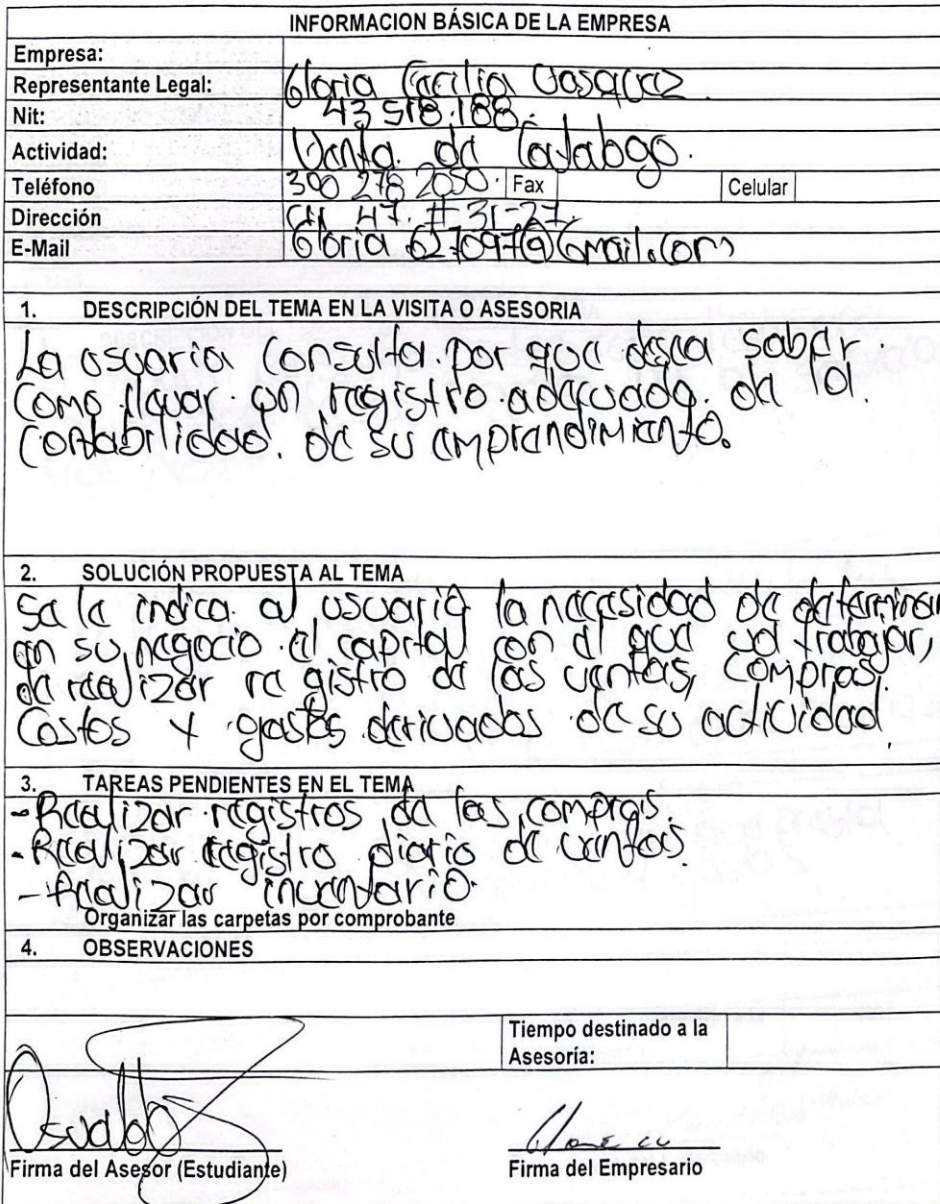 INFORMACION BÁSICA DE LA EMPRESA
Empresa:
Representante Legal: Gloria Cecilia Vasquez
Nit: 43 518.188.
Actividad: Venta de Catabogo.
Teléfono 300 278 2050. Fax Celular
Dirección 47. # 31-27
E-Mail Gloria 627097@Gmail.com
1. DESCRIPCIÓN DEL TEMA EN LA VISITA O ASESORIA
La usuaria consulta por que desea saber.
Como llevar un registro adecuado. de la
contabilidad. de su emprendimiento.
2. SOLUCIÓN PROPUESTA AL TEMA
Se le indica al usuario la necesidad de determinar
en su negocio el capital con el que va trabajar,
de realizar registro de las ventas, compras.
Costos y gastos derivados de su actividad.
3. TAREAS PENDIENTES EN EL TEMA
- Realizar registros de las compras.
- Realizar registro diario de ventas.
- Realizar inventario.
Organizar las carpetas por comprobante
4. OBSERVACIONES
Tiempo destinado a la
Asesoría:
Osvaldo
Firma del Asesor (Estudiante) Firma del Empresario